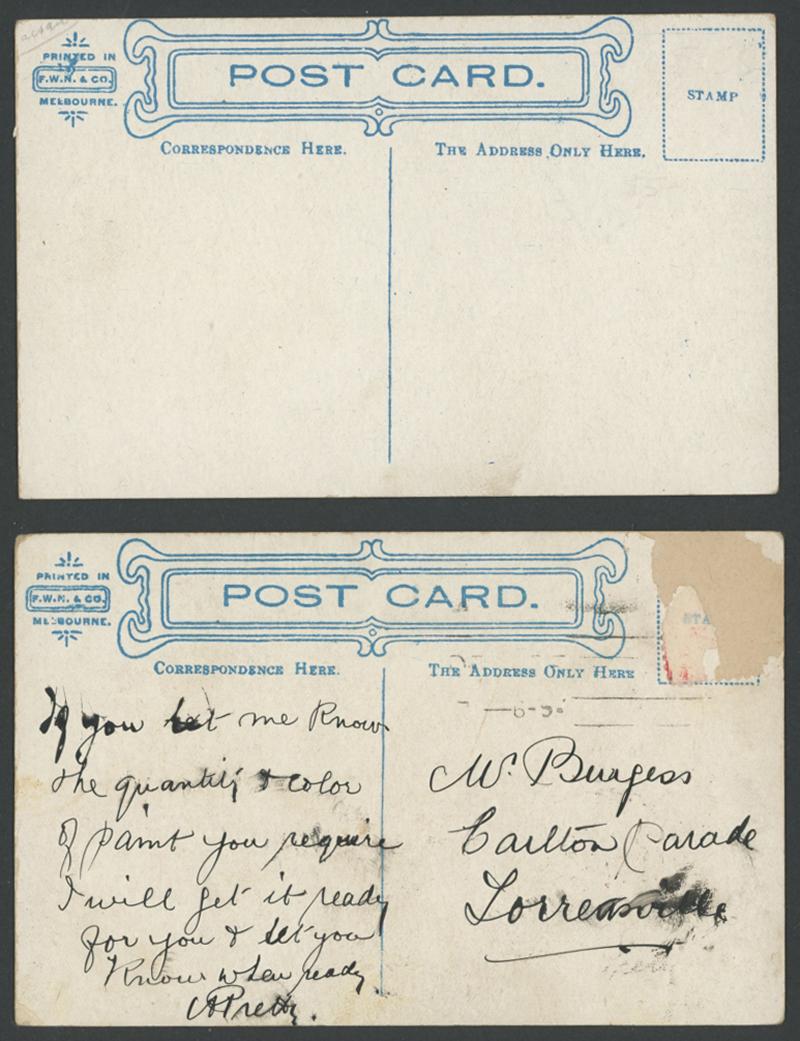 PRINTED IN
F.W.N. & CO.
MELBOURNE.
POST CARD.
CORRESPONDENCE HERE.
THE ADDRESS ONLY HERE.
STAMP
PRINTED IN
F.W.N. & CO.
MELBOURNE.
POST CARD.
STA
CORRESPONDENCE HERE.
THE ADDRESS ONLY HERE
If you let me Know
the quantity & color
of paint you require
I will get it ready
for you & let you
Know when ready
Pretty.
Mr. Burgess
Carlton Parade
Torrensville